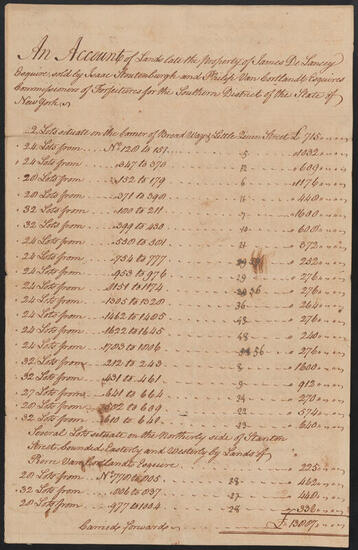 An Account of Lands late the property of James De Lancey
Esquire, sold by Isaac Stoutenburgh and Philip Van Cortlandt Esquires
Commissioners of Forfeitures for the Southern District of the State of
New York
2 Lots situate on the Corner of Broad Way & Little Queen Street £ 715
24 Lots from Nº 120 to 151 5 1032
24 Lots from 347 to 370 12 609
20 Lots from 152 to 179 6 1176
20 Lots from 371 to 390 440
32 Lots from to 211 7 1600
32 Lots from 399 to 430 600
24 Lots from to 372
24 Lots from 754 to 777 252
24 Lots from 953 to 976 29 276
24 Lots from 1151 to 1174 56 276
24 Lots from to 1320 264
24 Lots from 1462 to 1485 276
24 Lots from 1622 to 1645 240
24 Lots from 1703 to 56 276
32 Lots from 212 to 243 8 1600
32 Lots from 431 to 461 9 912
27 Lots from 641 to 664 24 270
20 Lots from to 609 22 574
32 Lots from 610 to 640 23 640
Several Lots situate on the Northerly side of Stanton
Street bounded Easterly and Westerly by Lands of
Van Cortlandt Esquire 225
20 Lots from Nº 770 to 28 462
32 Lots from to 27 440
20 Lots from 977 to 1004 28 336
Carried forward £ 13007